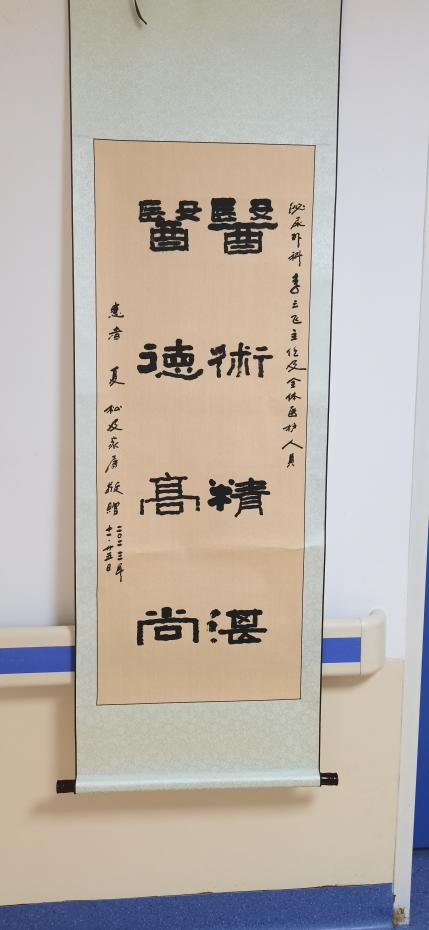 泌尿外科李三飞主任及全体医护人员
醫術精湛
醫德高尚
患者 夏松及家屬敬贈
二〇二三年
十一·廿五日